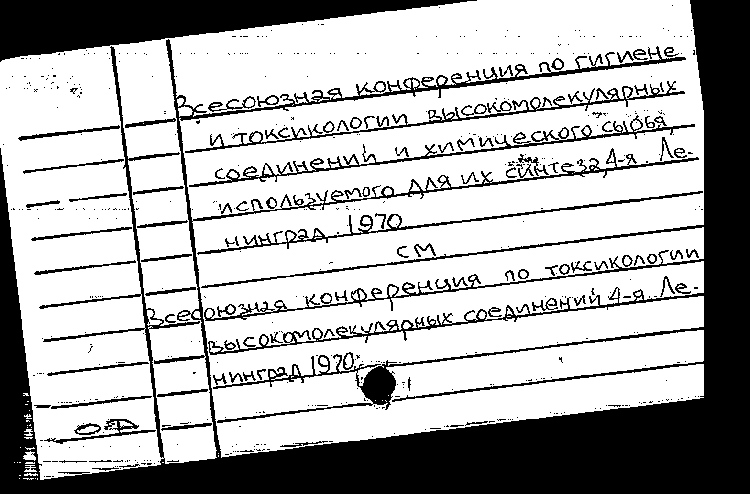 Всесоюзная конференция по гигиене
и токсикологии высокомолекулярных
соединений и химического сырья,
используемого для их синтеза, 4-я. Ле-
нинград. 1970
см.
Всесоюзная конференция по токсикологии
высокомолекулярных соединений, 4-я. Ле-
нинград 1970.